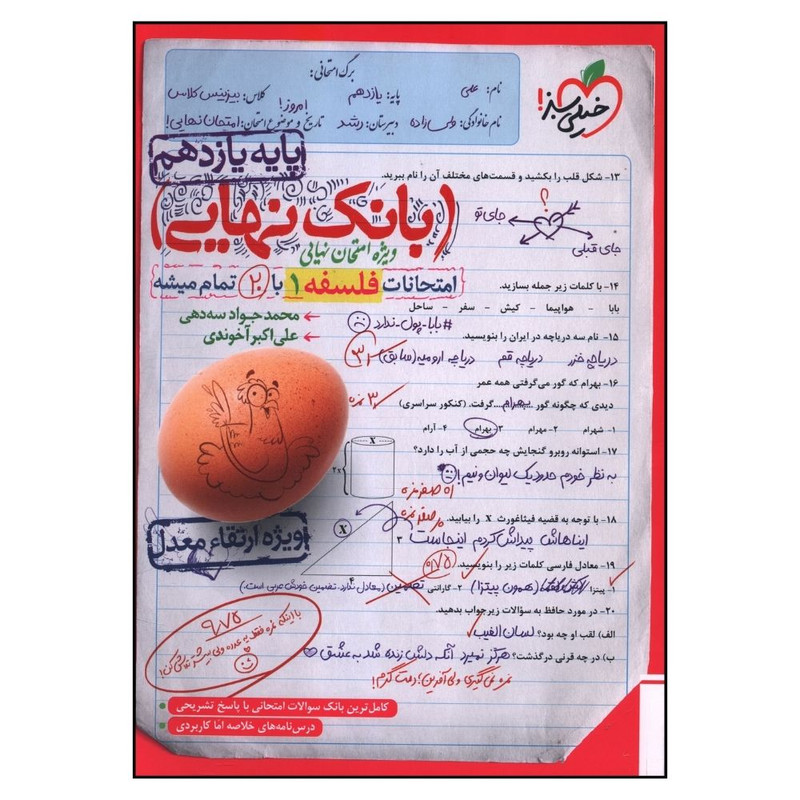 خیلی سبز!
برگ امتحانی:
نام: علی
پایه: یازدهم
کلاس: بیزینس کلاس
نام خانوادگی: ولی‌زاده
دبیرستان: رشد
تاریخ و موضوع امتحان: امروز! امتحان نهایی!
پایه یازدهم
(بانک نهایی)
ویژه امتحان نهایی
امتحانات فلسفه ۱ با ۲۰ تمام میشه
محمدجواد سه‌دهی
علی‌اکبر آخوندی
۱۳- شکل قلب را بکشید و قسمت‌های مختلف آن را نام ببرید.
؟
جای تو
جای قبلی
۱۴- با کلمات زیر جمله بسازید.
بابا - هواپیما - کیش - سفر - ساحل
#بابا-پول-ندارد
۱۵- نام سه دریاچه در ایران را بنویسید.
دریاچه خزر دریاچه قم دریاچه ارومیه (سابق)
۱۶- بهرام که گور می‌گرفتی همه عمر
دیدی که چگونه گور ....بهرام.... گرفت. (کنکور سراسری)
۳ نمره
۱- شهرام ۲- مهرام ۳- بهرام ۴- آرام
۱۷- استوانه روبرو گنجایش چه حجمی از آب را دارد؟
به نظر خودم حدود یک لیوان و نیم!
x
۲x
۱۸- با توجه به قضیه فیثاغورث X را بیابید.
ایناهاش پیداش کردم اینجاست
X
۳
۴
۱۹- معادل فارسی کلمات زیر را بنویسید.
۰/۷۵
۱- پیتزا (همون پیتزا) ۲- گارانتی تضمین (معادل ندارد. تضمین خودش عربی است.)
۲۰- در مورد حافظ به سؤالات زیر جواب بدهید.
الف) لقب او چه بود؟ لسان الغیب
ب) در چه قرنی درگذشت؟ هرگز نمیرد آنکه دلش زنده شد به عشق
نمره نمی‌گیری ولی آفرین! دمت گرم!
ویژه ارتقاء معدل
۹/۷۵
کامل‌ترین بانک سوالات امتحانی با پاسخ تشریحی
درس‌نامه‌های خلاصه اما کاربردی